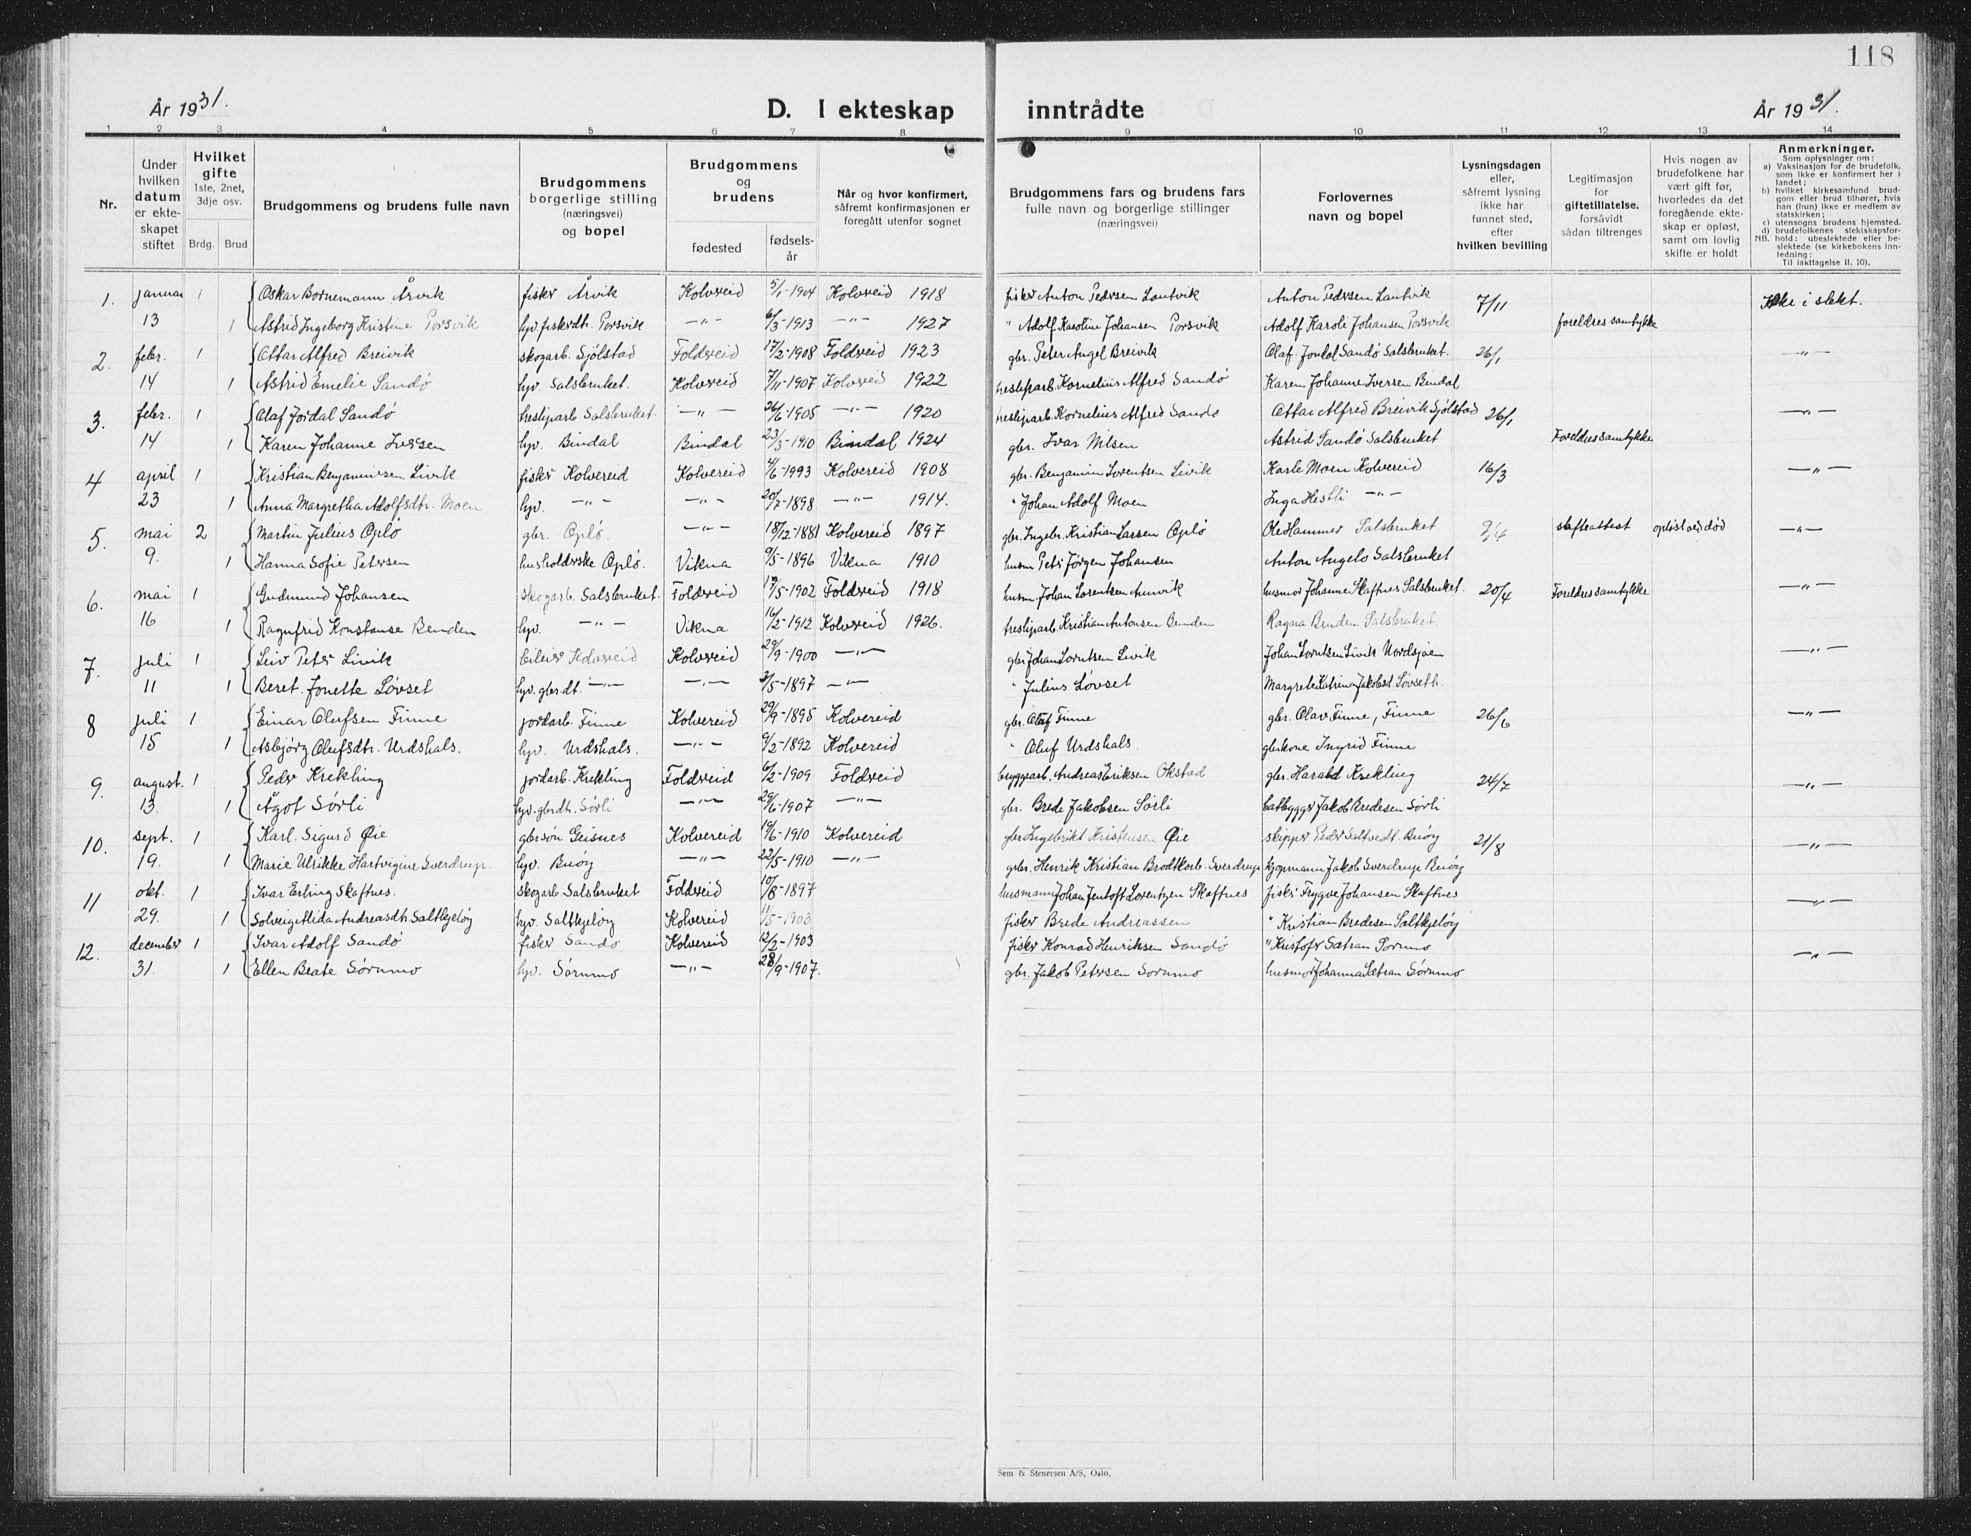 118
År 1931.
D. I ekteskap inntrådte
År 1931.
1 2 3 4 5 6 7 8 9 10 11 12 13 14
Nr.
Under hvilken datum er ekteskapet stiftet
Hvilket gifte 1ste, 2net, 3dje osv.
Brdg. Brud
Brudgommens og brudens fulle navn
Brudgommens borgerlige stilling (næringsvei) og bopel
Brudgommens og brudens
fødested
fødselsår
Når og hvor konfirmert, såfremt konfirmasjonen er foregått utenfor sognet
Brudgommens fars og brudens fars fulle navn og borgerlige stillinger (næringsvei)
Forlovernes navn og bopel
Lysningsdagen eller, såfremt lysning ikke har funnet sted, efter hvilken bevilling
Legitimasjon for giftetillatelse, forsåvidt sådan tiltrenges
Hvis nogen av brudefolkene har vært gift før, hvorledes da det foregående ekteskap er opløst, samt om lovlig skifte er holdt
Anmerkninger.
Som oplysninger om:
a) Vaksinasjon for de brudefolk, som ikke er konfirmert her i landet;
b) hvilket kirkesamfund brudgom eller brud tilhører, hvis han (hun) ikke er medlem av statskirken;
c) utensogns brudens hjemsted.
d) brudefolkenes slektskapsforhold: ubeslektede eller beslektede (se kirkebokens innledning:
NB. Til iakttagelse II. 10).
1. januar 1 Oskar Bornemann Årvik fisker Årvik Kolvereid 5/1-1904 Kolvereid 1918 fisker Anton Pedersen Lautvik Anton Pedersen Lautvik 7/11 Ikke i slekt.
13 1 Astrid Ingeborg Kristine Porsvik hyv. fiskerdtr. Porsvik -"- 6/3-1913 -"- 1927 " Adolf Karoline Johansen Porsvik Adolf Karoli Johansen Porsvik foreldres samtykke
2. febr. 1 Ottar Alfred Breivik skogarb. Sjölstad Foldereid 17/2-1908 Foldereid 1923 gbr. Peter Angel Breivik Olaf Jordal Sandø Salsbruket. 26/1 -"-
14 1 Astrid Emelie Sandø hyv. Salsbruket. Kolvereid 7/11-1907 Kolvereid 1922 tresliparb. Kornelius Alfred Sandø Karen Johanne Iversen Bindal
3. febr. 1 Olaf Jordal Sandø tresliparb Salsbruket. -"- 26/6-1905 -"- 1920 tresliparb Kornelius Alfred Sandø Ottar Alfred Breivik Sjölstad 26/1 -"-
14 1 Karen Johanne Iversen hyv. Bindal Bindal 23/3-1910 Bindal 1924 gbr. Ivar Nilsen Astrid Sandø Salsbruket Foreldres samtykke
4 april 1 Kristian Benjaminsen Livik fisker Kolvereid Kolvereid 4/6-1993 Kolvereid 1908 gbr. Benjamin Lorentsen Livik Karle Moen Kolvereid 16/3 -"-
23 1 Anna Margretha Adolfsdtr. Moen hyv. -"- -"- 20/7-1898 -"- 1914. " Johan Adolf Moen Inga Hestli -"-
5. mai 2 Martin Julius Oplø gbr. Oplø. -"- 18/12-1881 Kolvereid 1897 gbr. Ingebr. Kristian Larsen Oplø Ole Hammer Salsbruket 9/4 skifteattest opløst ved død -"-
9. 1 Hanna Sofie Petersen husholderske Oplø. Vikna 9/5-1896 Vikna 1910 husm Peter Jørgen Johansen Anton Angelo Salsbruket
6. mai 1 Gudmund Johansen skogarb. Salsbruket. Foldereid 19/5-1902 Foldereid 1918 husm. Johan Lorentsen husmor Johanne Skaftnes Salsbruket. 20/4 Foreldres samtykke -"-
16 1 Ragnfrid Konstanse Benden hyv. -"- Vikna 16/2-1912 Kolvereid 1926. tresliparb. Kristian Antonsen Benden Ragna Benden Salsbruket.
7. juli 1 Leiv Peter Livik Kolvereid Kolvereid 29/9-1900 -"- gbr Johan Lorntsen Livik Johan Lorntsen Livik Nordsjøen -"-
11 1 Beret Jonette Løvset hyv. gbrdt. -"- -"- 2/5-1897 -"- " Julius Løvset Margrete Katrina Jakobsd Løvseth.
8 juli 1 Einar Olufsen Finne jordarb. Finne Kolvereid 29/9-1895 Kolvereid gbr. Oluf Finne gbr. Olav Finne, Finne 26/6 -"-
15 1 Asbjörg Olufsdtr. Urdshals. hyv. Urdshals. -"- 9/2-1892 Kolvereid " Oluf Urdshals gbrkone Ingrid Finne
9. august. 1 Peder Krekling jordarb. Krekling Foldereid 6/2-1909 Foldereid bryggearb. Andreas Eriksen Okstad gbr. Harald Krekling 24/7 -"-
13. 1 Ågot Sörli hyv. gbrdtr. Sörli -"- 29/6-1907 -"- gbr. Brede Jakobsen Sörli batbygger Jakob Bredesen Sörli
10. sept. 1 Karl. Sigurd Øie gbrsön Geisnes Kolvereid 19/6-1910 Kolvereid gbr Ingebrikt Kristensen Øie skipper Peder Saltvedt. Buöy 21/8 -"-
19. 1 Marie Ulrikke Hartvigine Sverdrup. hyv. Buöy -"- 22/5-1910 -"- gbr. Henrik Kristian Brodtkorb Sverdrup kjøpmann Jakob Sverdrup Buöy
11 okt. 1 Ivar Erling Skaftnes. skogarb Salsbruket Foldereid 10/8-1897 husmann Johan Jentoft Lorentzen Skaftnes fisker Trygve Johansen Skaftnes -"-
29. 1 Solveig Alida Andreasdtr. Saltkjeløy hyv. Saltkjeløy Kolvereid 11/5-1903 fisker Brede Andreassen " Kristian Bredesen Saltkjeløy
12. december 1 Ivar Adolf Sandø fisker Sandø Kolvereid 12/2-1903 fisker Konrad Henriksen Sandø " Kristofer Sætran Sörumo -"-
31. 1 Ellen Beate Sørumo hyv. Sørumo -"- 28/9-1907. gbr. Jakob Petersen Sørumo husmor Johanna Sætran Sørumo
Sem & Stenersen A/S, Oslo.